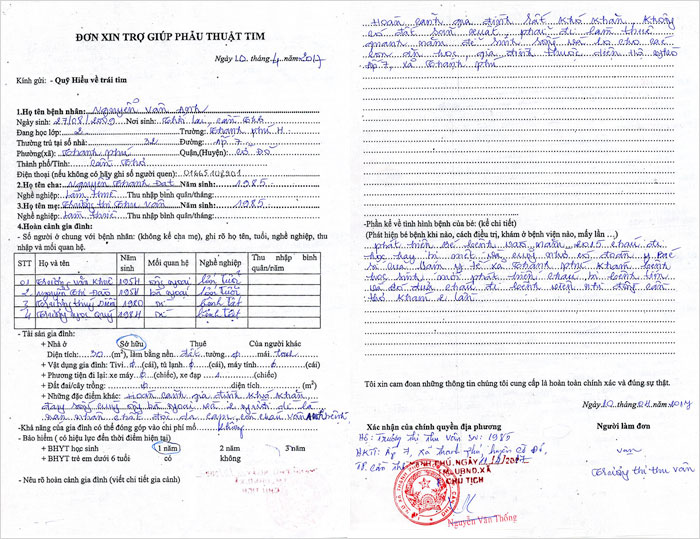 ĐƠN XIN TRỢ GIÚP PHẪU THUẬT TIM
Ngày 10 tháng 4 năm 2017
Kính gửi: - Quỹ Hiểu về trái tim
1.Họ tên bệnh nhân: Nguyễn Văn Anh
Ngày sinh: 27/08/2009 Nơi sinh: Thới Lai, Cần Thơ
Đang học lớp: 2 Trường: Thạnh Phú H
Thường trú tại số nhà: 32 Đường: Ấp 7
Phường(xã): Thạnh Phú Quận,(Huyện): Cờ Đỏ
Thành phố/Tỉnh: Cần Thơ
Điện thoại (nếu không có hãy ghi số người quen):
2.Họ tên cha: Nguyễn Thành Đạt Năm sinh: 1985
Nghề nghiệp: Làm thuê Thu nhập bình quân/tháng:
3.Họ tên mẹ: Trương Thị Thu Vân Năm sinh: 1985
Nghề nghiệp: Làm thuê Thu nhập bình quân/tháng:
4.Hoàn cảnh gia đình:
- Số người ở chung với bệnh nhân: (không kể cha mẹ), ghi rõ họ tên, tuổi, nghề nghiệp, thu
nhập và mối quan hệ.
STT Họ và tên Năm sinh Mối quan hệ Nghề nghiệp Thu nhập bình quân/năm
01 Trương Văn Khuê ông ngoại lớn tuổi
2 Nguyễn Thị Đào bà ngoại lớn tuổi
3 Trương Thuỳ Diễm 1980 dì bệnh tật
4 Trương Ngọc Quý dì bệnh tật
- Tài sản gia đình:
+ Nhà ở Sở hữu Thuê Của người khác
Diện tích: 30 (m²), làm bằng nền: đất tường: 0 mái: tole
+ Vật dụng gia đình: Tivi 0 (cái), tủ lạnh 0 (cái), máy tính 0 (cái)
+ Phương tiện đi lại: xe máy 0 (chiếc), xe đạp 1 (chiếc)
+ Đất đai/cây trồng: 0 diện tích (m)
+ Những đặc điểm khác: Hoàn cảnh gia đình khó khăn
đang sống cùng ông bà ngoại và 2 người dì
- Khả năng của gia đình có thể đóng góp vào chi phí mổ: không
- Bảo hiểm ( có hiệu lực đến thời điểm hiện tại)
+ BHYT học sinh 1 năm 2 năm 3 năm
+ BHYT trẻ em dưới 6 tuổi có không
- Nêu rõ hoàn cảnh gia đình (viết chi tiết gia cảnh)
Hoàn cảnh gia đình rất khó khăn, không
có đất sản xuất, phải đi làm thuê
quanh năm để sinh sống và lo cho các
con ăn học, gia đình thuộc diện hộ nghèo
ấp 7, xã Thạnh Phú
-Phần kể về tình hình bệnh của bé: (kể chi tiết)
(Phát hiện bé bệnh khi nào, cách điều trị, khám ở bệnh viện nào, mấy lần …)
phát hiện bé bệnh vào năm 2015 cháu đi
học hay bị mệt và
bị của trạm y tế xã Thạnh Phú khám bệnh
học sinh mới phát hiện cháu bị bệnh tim
và đã đưa cháu đi bệnh viện nhi đồng cần
thơ khám 2 lần
Tôi xin cam đoan những thông tin chúng tôi cung cấp là hoàn toàn chính xác và đúng sự thật.
Ngày 10 tháng 04 năm 2017
Xác nhận của chính quyền địa phương Người làm đơn
Hộ: Trương Thị Thu Vân SN: 1985
HKTT: Ấp 7, xã Thạnh Phú, huyện Cờ Đỏ,
TP. Cần Thơ
THẠNH PHÚ, NGÀY 11/4/2017
TM. UBND XÃ
CHỦ TỊCH
Nguyễn Văn Thống
Vân
Trương Thị Thu Vân